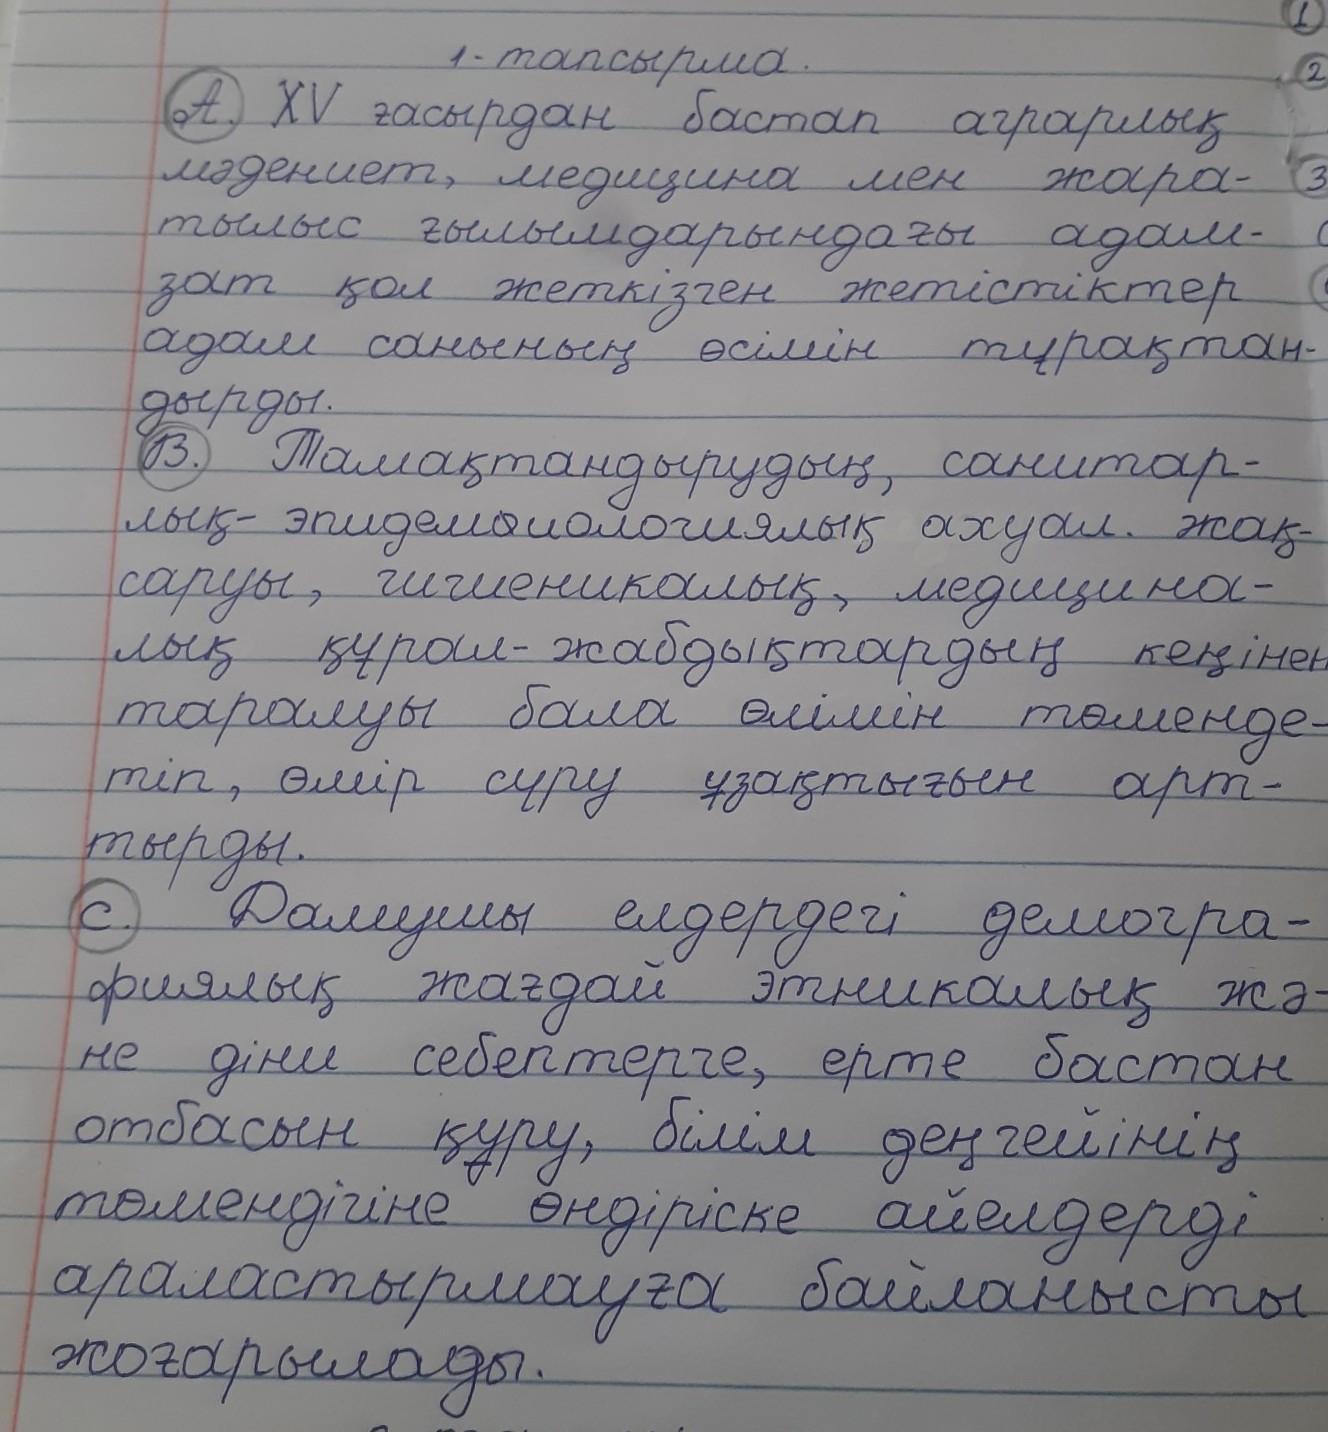 1
1-тапсырма.
2
А. XV ғасырдан бастап аграрлық
мәдениет, медицина мен жара-
3
тылыс ғылымдарындағы адам-
зат қол жеткізген жетістіктер
адам санының өсімін тұрақтан-
дырды.
В. Тамақтандырудың, санитар-
лық-эпидемиологиялық ахуал. жақ-
саруы, гигиеникалық, медицина-
лық құрал-жабдықтардың кеңінен
таралуы бала өлімін төменде-
тіп, өмір сүру ұзақтығын арт-
тырды.
С. Дамушы елдердегі демогра-
фиялық жағдай этникалық жә-
не діни себептерге, ерте бастан
отбасын құру, білім деңгейінің
төмендігіне өндіріске әйелдерді
араластырмауға байланысты
жоғарылады.